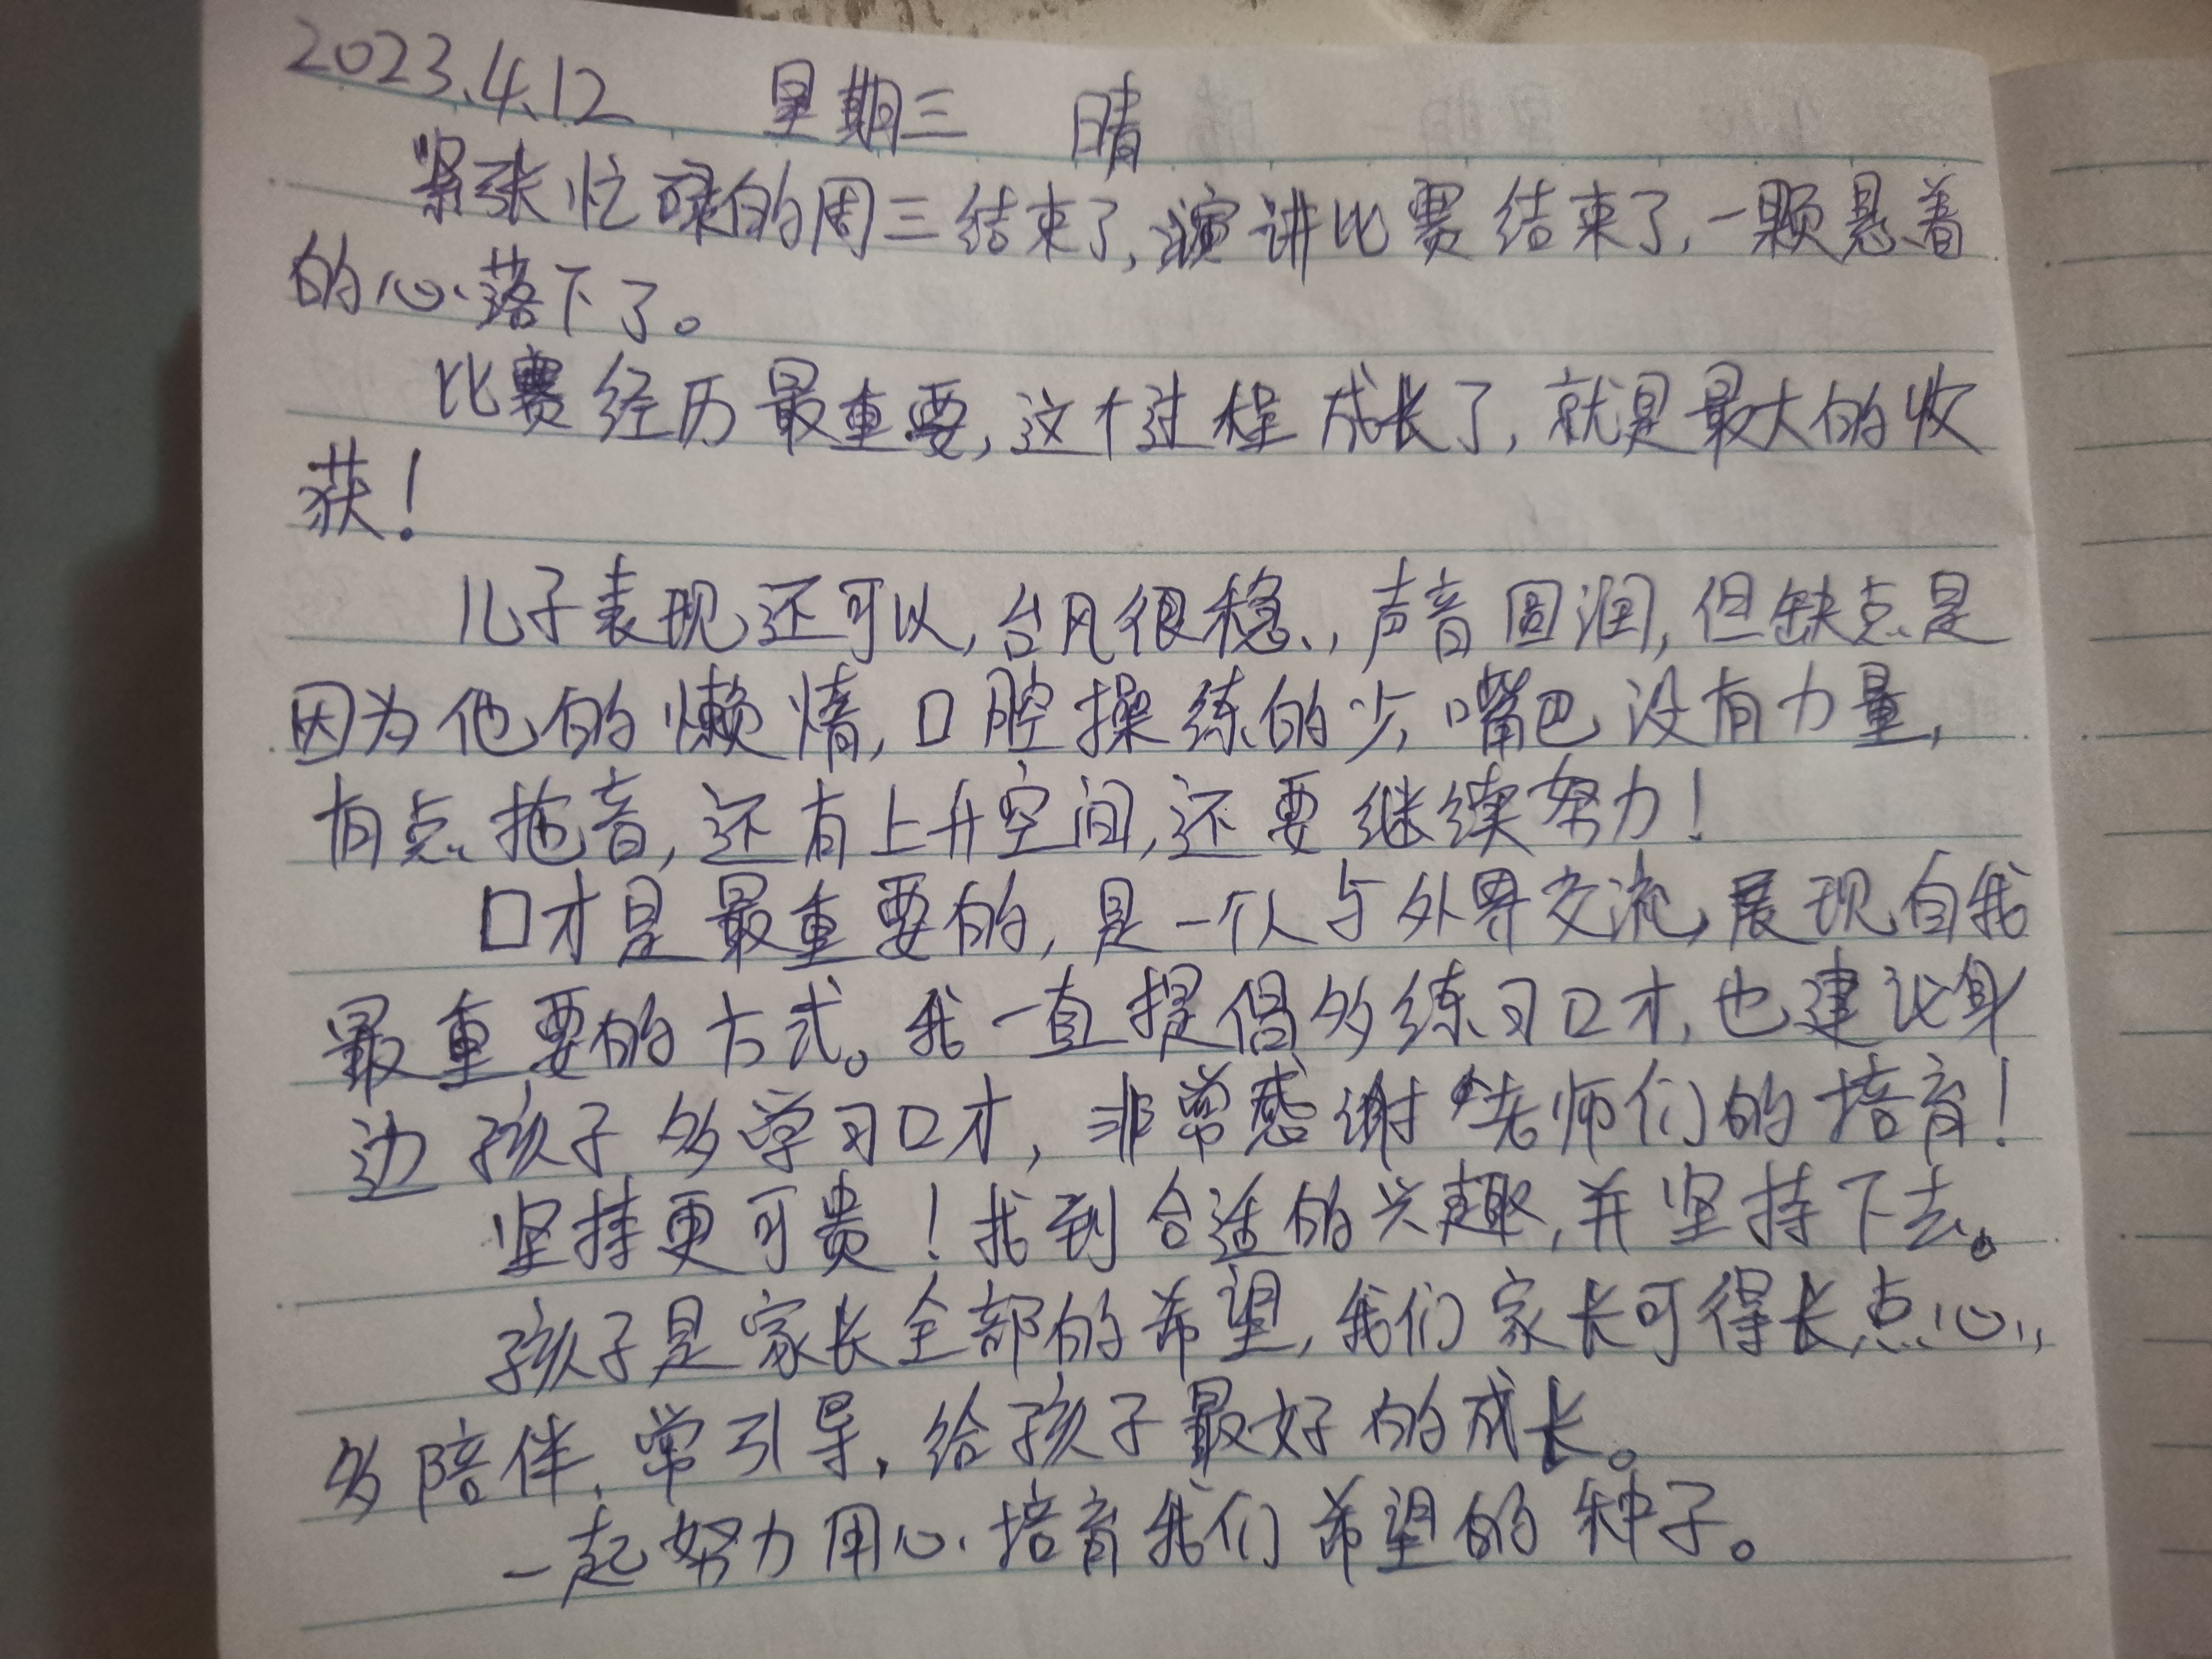 2023.4.12 星期三 晴
紧张忙碌的周三结束了,演讲比赛结束了,一颗悬着
的心落下了。
比赛经历最重要,这个过程成长了,就是最大的收
获!
儿子表现还可以,台风很稳,声音圆润,但缺点是
因为他的懒惰,口腔操练的少,嘴巴没有力量,
有点拖音,还有上升空间,还要继续努力!
口才是最重要的,是一个人与外界交流,展现自我
最重要的方式。我一直提倡多练习口才,也建议身
边孩子多学习口才,非常感谢老师们的培育!
坚持更可贵!找到合适的兴趣,并坚持下去。
孩子是家长全部的希望,我们家长可得长点心,
多陪伴,常引导,给孩子最好的成长。
一起努力用心培育我们希望的种子。